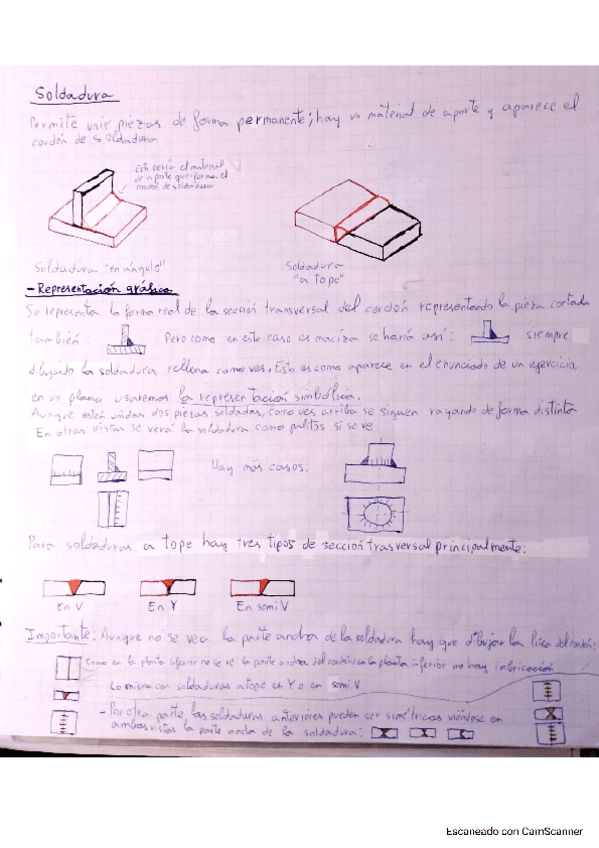 Soldadura
Permite unir piezas de forma permanente; hay un material de aporte y aparece el
cordón de soldadura
Este sería el material
de aporte que forma el
cordón de soldadura
Soldadura "en ángulo"
Soldadura
"a tope"
- Representación gráfica
Se representa la forma real de la sección transversal del cordón representando la pieza cortada
también: Pero como en este caso es maciza se haría así: siempre
dibujando la soldadura rellena como ves. Esto es como aparece en el enunciado de un ejercicio,
en un plano usaremos la representación simbólica.
Aunque estén unidas dos piezas soldadas, como ves arriba se siguen rayando de forma distinta
En otras vistas se verá la soldadura como palitos si se ve.
Hay más casos:
Para soldaduras a tope hay tres tipos de sección trasversal principalmente:
En V En Y En semi V
Importante: Aunque no se vea la parte ancha de la soldadura hay que dibujar la línea del cordón:
Como en la planta inferior no se ve la parte ancha del cordón en la planta inferior no hay
Lo mismo con soldaduras a tope en Y o en semi V
- Por otra parte, las soldaduras anteriores pueden ser simétricas viéndose en
ambas vistas la parte ancha de la soldadura:
Escaneado con CamScanner